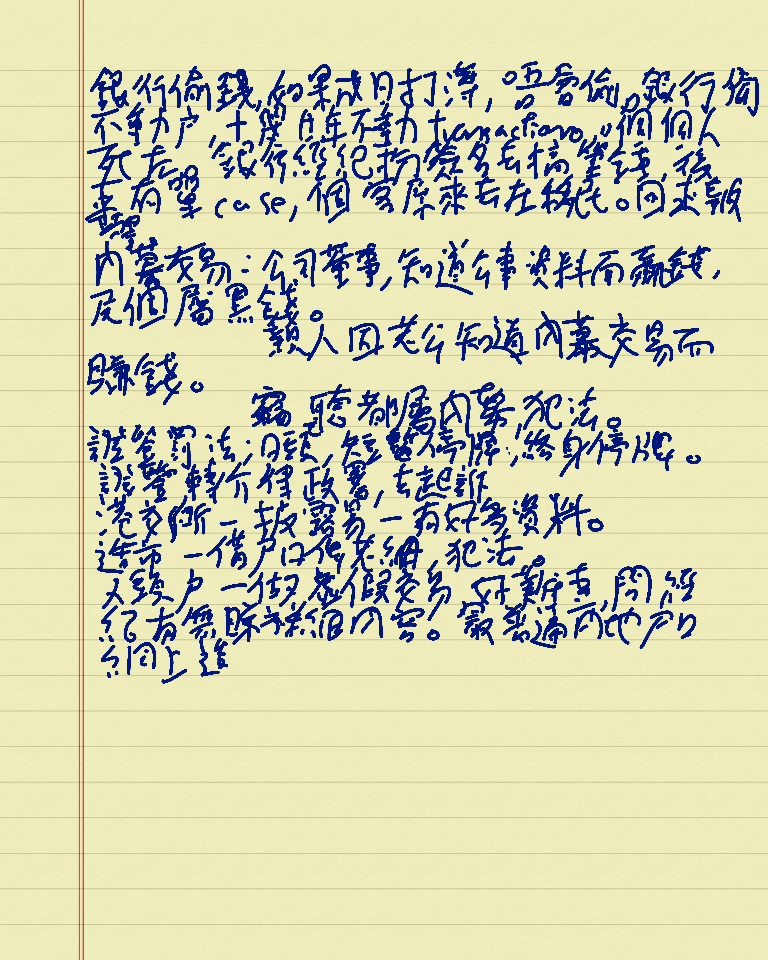 銀行偷錢,如果成日打簿,唔會偷。銀行偷
不動户,十幾廿年不動 transactions,個個人
死左。銀行經紀扮簽名去搞筆錢,後
來有單 case,個客原來去左移民。回來報
內幕交易:公司董事,知道公事資料而贏錢,
尼個屬黑錢。
親人因老公知道內幕交易而
賺錢。
竊聽都屬內幕,犯法。
證監罰法:日頭,短暫停牌,終身停牌。
證監轉介律政署,去起訴
港交所一披露易一有好多資料。
造市一借户口俾老細,犯法。
人頭户一做虛假交易,好難查,問經
紀有無 內容。最普遍兩地户口
網上造